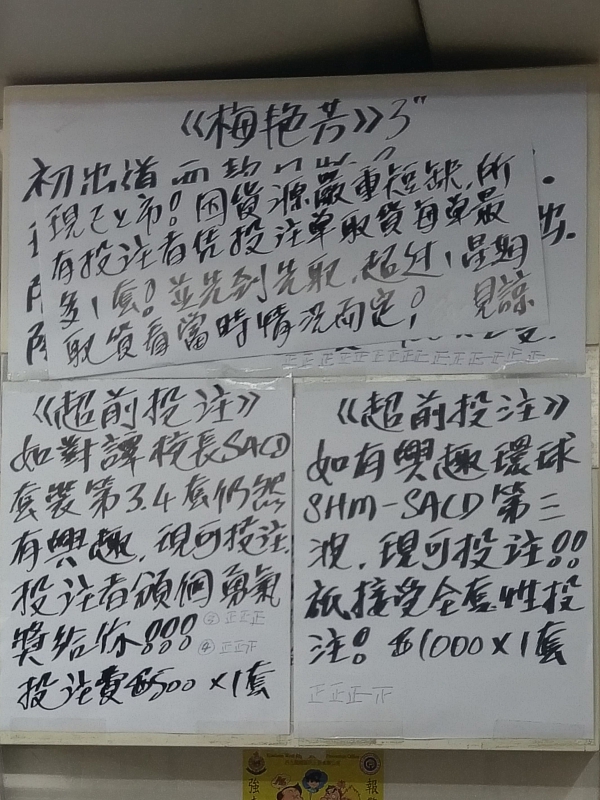 《梅艳芳》3"
初出道
現已上市！因貨源嚴重短缺，所
有投注者凭投注單取貨每單最
多1套！並先到先取，超过1星期
取貨看當時情況而定！ 見諒
正正正正正正正正正正正正
《超前投注》
如對譚校長SACD
套裝第3.4套仍然
有興趣，現可投注，
投注者頒個勇氣
獎給你!!!
③正正正
④正正
投注費@500 ×1套
《超前投注》
如有興趣環球
SHM-SACD第三
波，現可投注!!
祗接受全套性投
注！@1000×1套
正正正
強
報